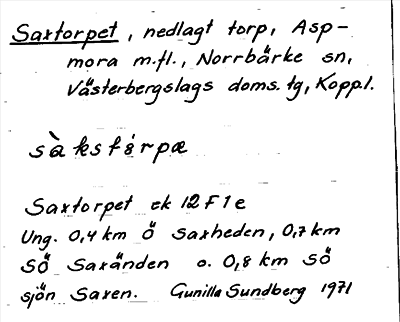 Saxtorpet, nedlagt torp, Asp-
mora m.fl., Norrbärke sn,
Västerbergslags doms. tg, Kopp.l.
sàksfèrpæ
Saxtorpet ek 12 F 1 e
Ung. 0,4 km Ö Saxheden, 0,7 km
SÖ Saxänden o. 0,8 km SÖ
sjön Saxen. Gunilla Sundberg 1971